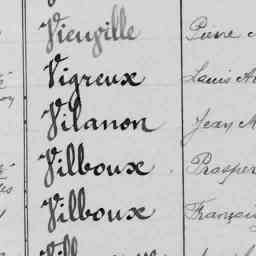 Vieuville Pierre
Vigreux Louis
Vilanon Jean M
Vilboux Prosper
Vilboux François